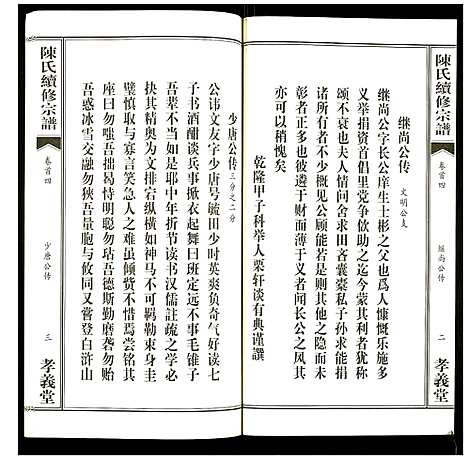 陳氏續修宗譜
卷首四
繼尚公传
二
孝義堂
继尚公传 文明公支
继尚公字长公庠生士彬之父也爲人慷慨乐施多
义举捐资首倡里党争伙助之迄今蒙其利者犹称
颂不衰也夫人情问舍求田吝囊橐私子孙求能捐
诸所有者不少概见公顾能若是是可以传矣
彰者正多也彼遴于财而薄于义者闻长公之风其
亦可以稍愧矣
乾隆甲子科举人粟轩谈有典谨譔
少唐公传 三分之二分
公讳文友字少唐号毓田少时英爽负奇气好读七
子书酒酣谈兵事掀衣起舞曰班定远不事毛锥子
吾辈不当如是耶中年折节读书汉儒註疏之学必
抉其精奥为文排宕纵横如神马不可羁勒束身圭
璧慎取与寡言笑急人之难虽倾赀不惜焉尝铭其
座曰勿咄吾拙勿恃明聪勿玷吾德斯勤磨砻勿贻
吾惑冰雪交融勿狭吾量胞与攸同又嘗登白浒山
陳氏續修宗譜
卷首四
少唐公传
三
孝義堂